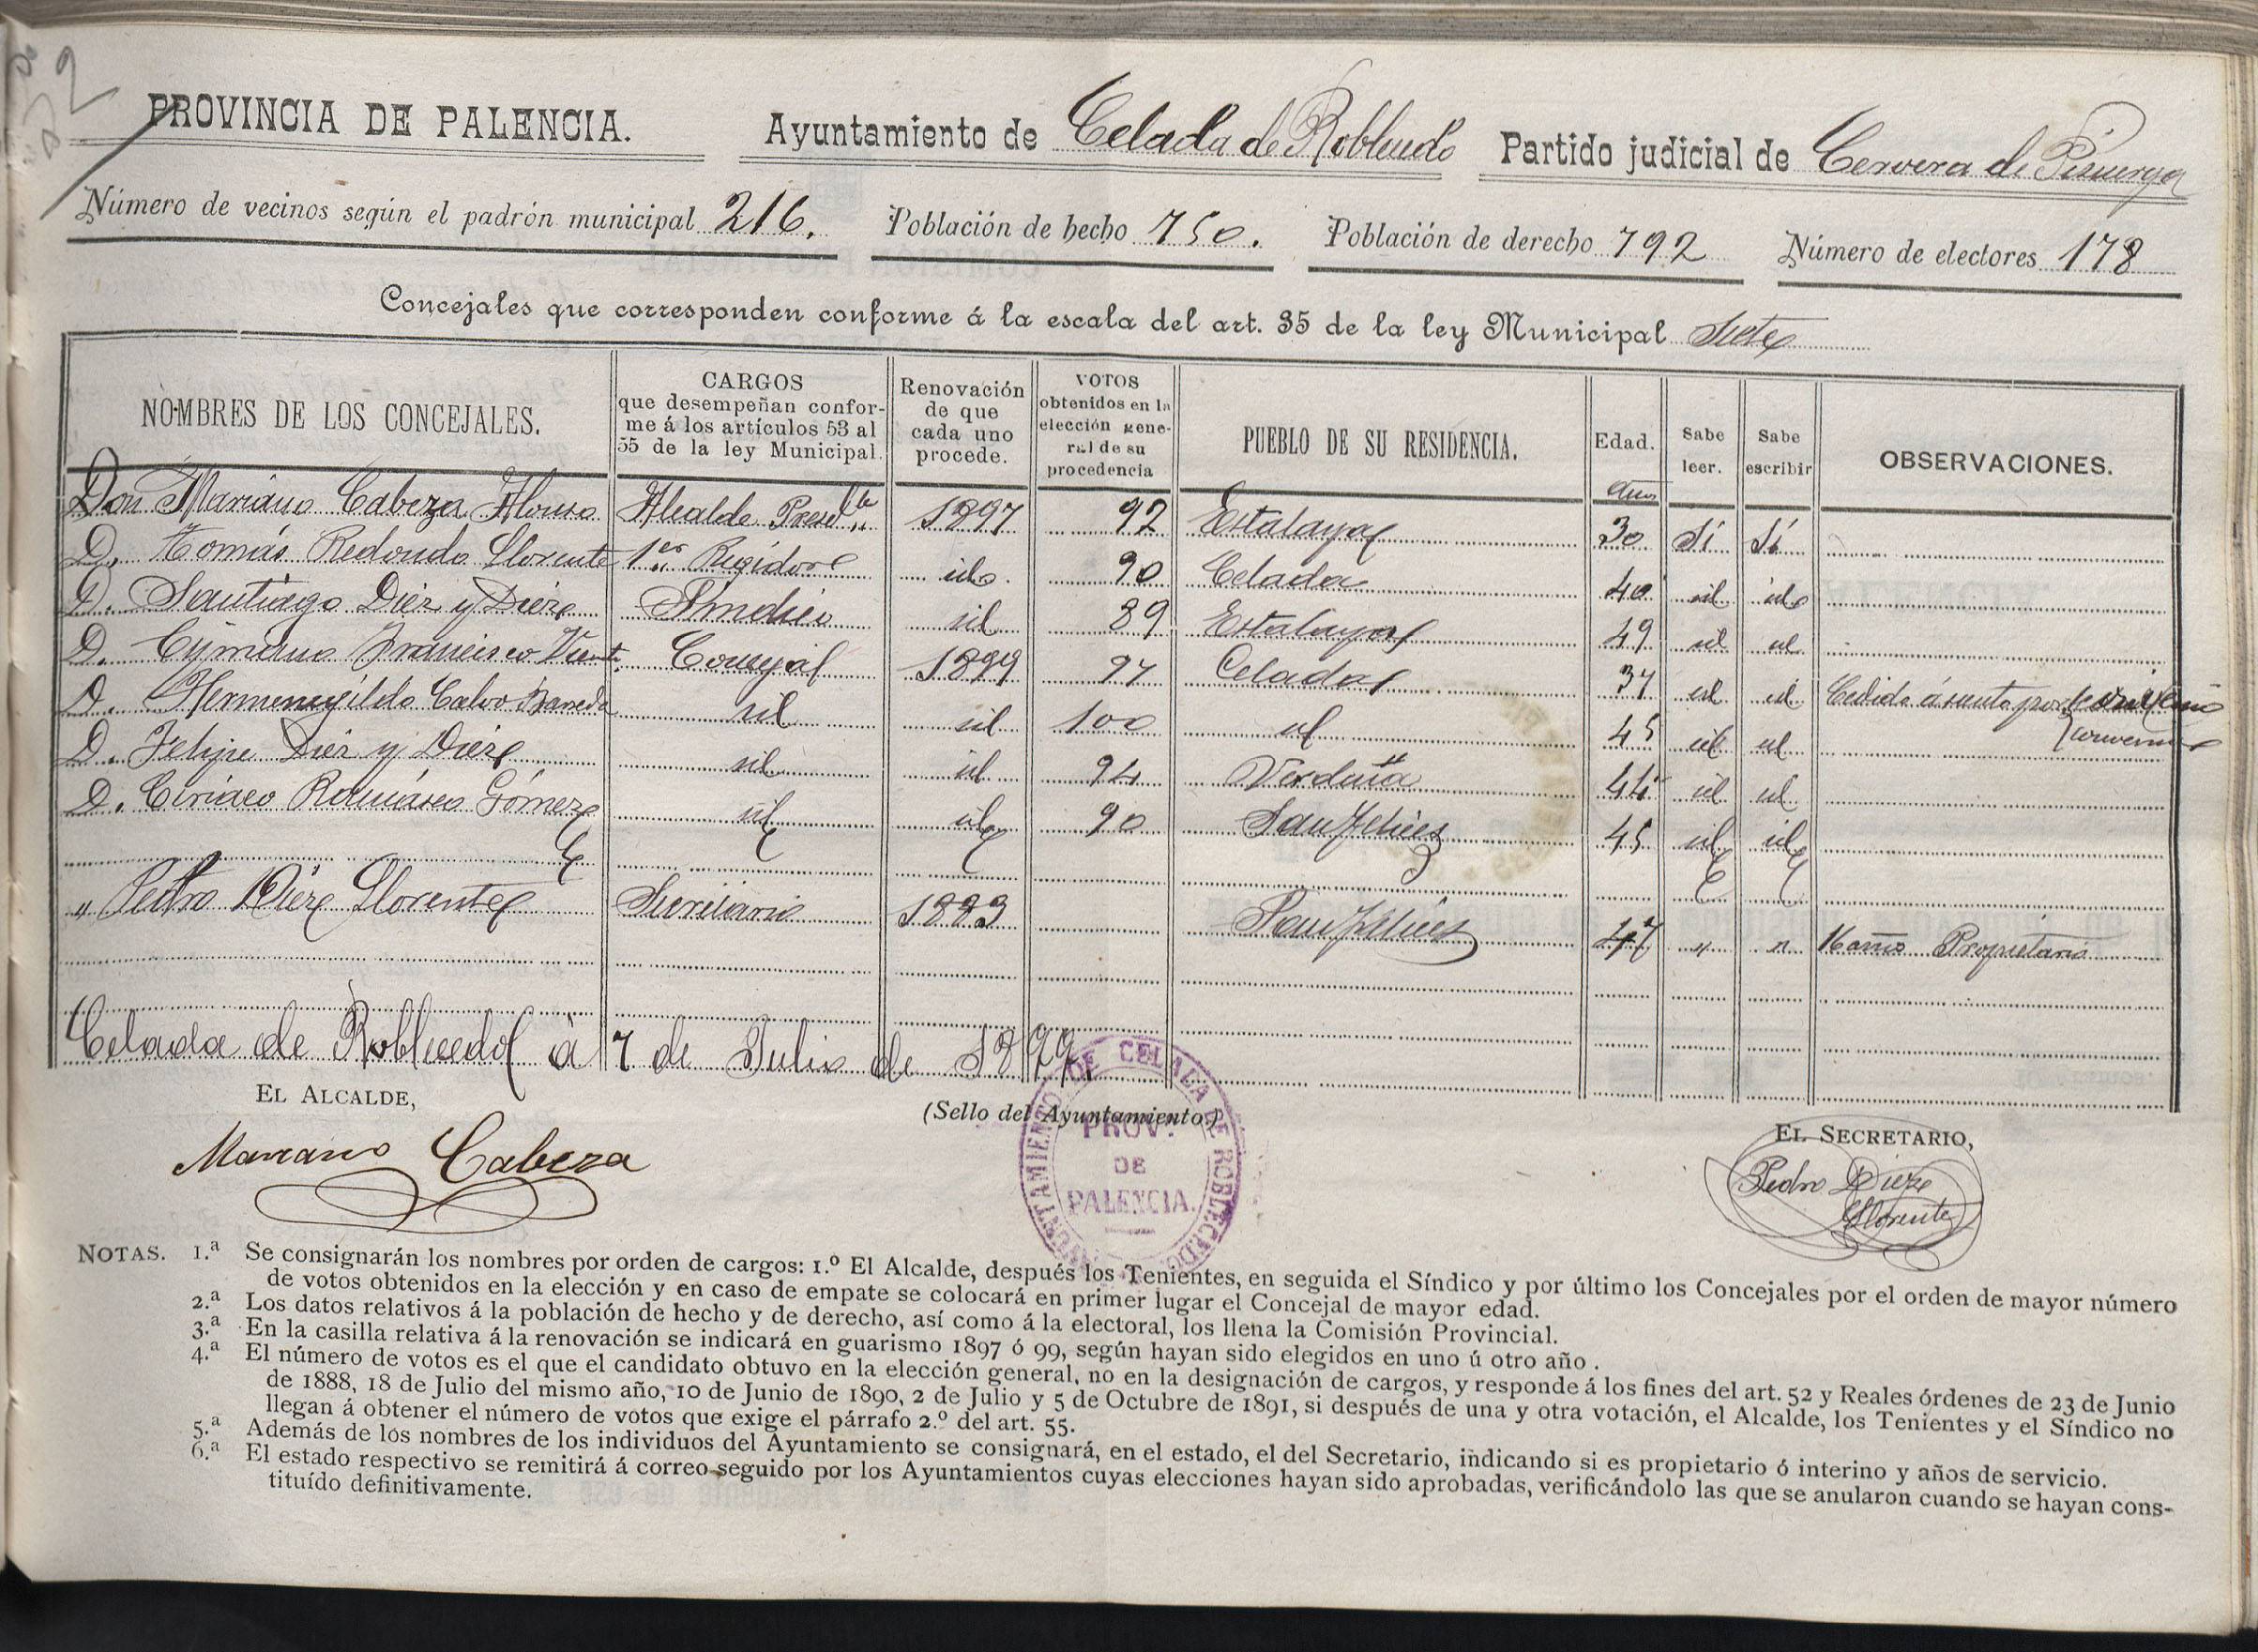 PROVINCIA DE PALENCIA. Ayuntamiento de Celada de Roblecedo Partido judicial de Cervera de Pisuerga
Número de vecinos según el padrón municipal 216. Población de hecho 750. Población de derecho 792 Número de electores 178
Concejales que corresponden conforme á la escala del art. 35 de la ley Municipal Siete
NOMBRES DE LOS CONCEJALES. CARGOS que desempeñan confor- me á los artículos 53 al 55 de la ley Municipal. Renovación de que cada uno procede. VOTOS obtenidos en la elección gene- ral de su procedencia PUEBLO DE SU RESIDENCIA. Edad. Sabe leer. Sabe escribir OBSERVACIONES.
años
Don Mariano Cabeza Alonso Alcalde Presdte 1897 92 Estalaya 30 Sí Sí
D. Tomás Redondo Llorente 1er Regidor id. 90 Celada 40 id id
D. Santiago Diez y Diez Síndico id 89 Estalaya 49 id id
D. Francisco Vicente Concejal 1899 97 Celada 37 id id Cedido asiento por
D. Hermenegildo Calvo Barreda id id 100 id 45 id id convenio
D. Felipe Diez y Diez id id 94 Verdeña 44 id id
D. Ciriaco Gómez id id 90 San Felices 45 id id
" Pedro Diez Llorente Secretario 1883 San Felices 47 " " 16 años Propietario
Celada de Roblecedo á 7 de Julio de 1899
EL ALCALDE,
Mariano Cabeza
(Sello del Ayuntamiento)
AYUNTAMIENTO DE CELADA DE ROBLECEDO
PROV.
DE
PALENCIA.
EL SECRETARIO,
Pedro Diez
Llorente
NOTAS. 1.ª Se consignarán los nombres por orden de cargos: 1.º El Alcalde, después los Tenientes, en seguida el Síndico y por último los Concejales por el orden de mayor número
de votos obtenidos en la elección y en caso de empate se colocará en primer lugar el Concejal de mayor edad.
2.ª Los datos relativos á la población de hecho y de derecho, así como á la electoral, los llena la Comisión Provincial.
3.ª En la casilla relativa á la renovación se indicará en guarismo 1897 ó 99, según hayan sido elegidos en uno ú otro año.
4.ª El número de votos es el que el candidato obtuvo en la elección general, no en la designación de cargos, y responde á los fines del art. 52 y Reales órdenes de 23 de Junio
de 1888, 18 de Julio del mismo año, 10 de Junio de 1890, 2 de Julio y 5 de Octubre de 1891, si después de una y otra votación, el Alcalde, los Tenientes y el Síndico no
llegan á obtener el número de votos que exige el párrafo 2.º del art. 55.
5.ª Además de los nombres de los individuos del Ayuntamiento se consignará, en el estado, el del Secretario, indicando si es propietario ó interino y años de servicio.
6.ª El estado respectivo se remitirá á correo seguido por los Ayuntamientos cuyas elecciones hayan sido aprobadas, verificándolo las que se anularon cuando se hayan cons-
tituído definitivamente.